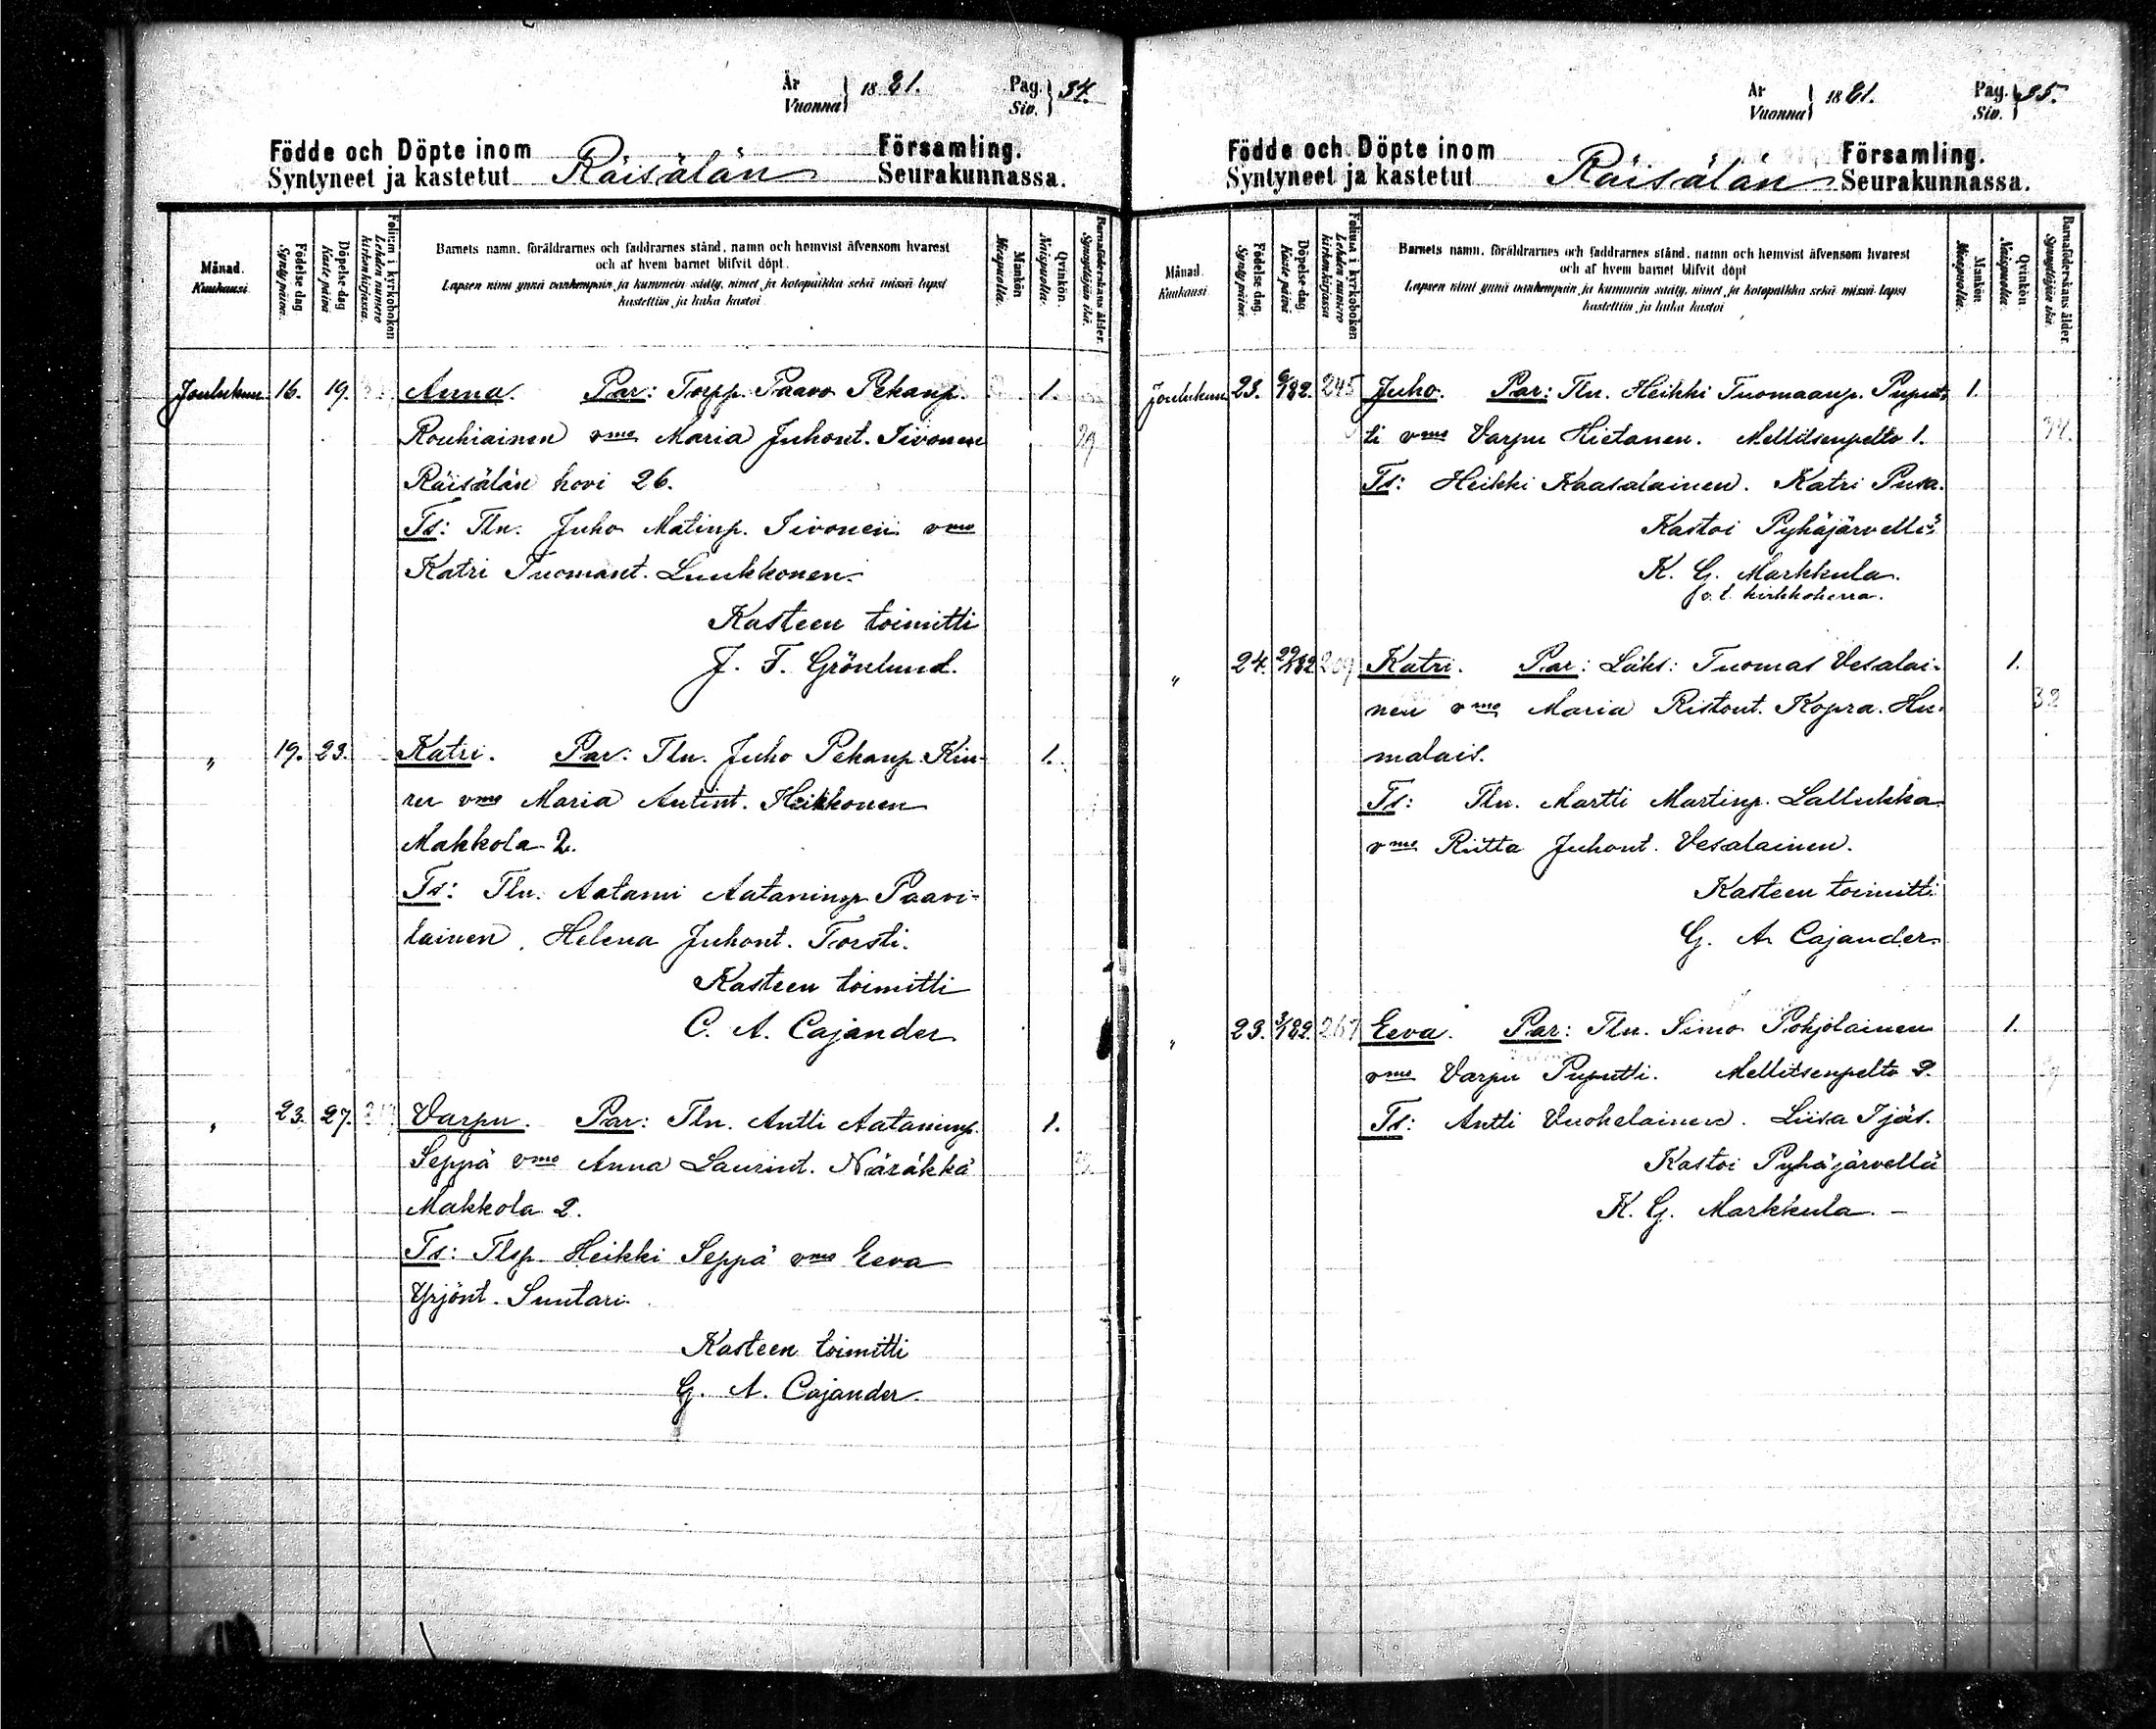 År
Vuonna } 1881. Pag.
Siv. } 34.
Födde och Döpte inom Räisälän Församling.
Syntyneet ja kastetut Seurakunnassa.
Månad.
Kuukausi
Födelse dag
Syntypäivä.
Döpelse-dag
Kaste päivä
Folium i kyrkoboken
Lehden numero
kirkonkirjassa.
Barnets namn, föräldrarnes och faddrarnes stånd, namn och hemvist äfvensom hvarest
och af hvem barnet blifvit döpt.
Lapsen nimi ynnä vanhempain ja kummein sääty, nimet ja kotopaikka sekä missä lapsi
kastettiin ja kuka kastoi
Mankön
Miespuolia.
Qvinkön.
Naispuolia.
Barnaföderskans ålder.
Synnyttäjän ikä.
Joulukuu 16. 19. Anna. Par: Torpp. Paavo Pekanp. 1.
Rouhiainen vmo Maria Juhont. Iivonen 29
Räisälän hovi 26.
Ts: Tln. Juho Matinp. Iivonen vmo
Katri Tuomant. Luukkonen.
Kasteen toimitti
J. F. Grönlund.
" 19. 23. Katri. Par: Tln. Juho Pekanp. Kin- 1.
ru vmo Maria Antint. Heikkonen
Makkola 2.
Ts: Tln. Aatami Aataminp. Paavi-
lainen. Helena Juhont. Torsti.
Kasteen toimitti
C. A. Cajander
" 23. 27. Varpu. Par: Tln. Antti Aataminp. 1.
Seppä vmo Anna Laurint. Näräkkä
Makkola 2.
Ts: Tlsp. Heikki Seppä vmo Eeva
Yrjönt. Suutari.
Kasteen toimitti
G. A. Cajander.
År
Vuonna } 1881. Pag.
Siv. } 35.
Födde och Döpte inom Räisälän Församling.
Syntyneet ja kastetut Seurakunnassa.
Månad.
Kuukausi
Födelse dag.
Syntypäivä.
Döpelse-dag.
Kaste päivä
Folium i kyrkoboken
Lehden numero
kirkonkirjassa
Barnets namn, föräldrarnes och faddrarnes stånd, namn och hemvist äfvensom hvarest
och af hvem barnet blifvit döpt
Lapsen nimi ynnä vanhempain ja kummein sääty, nimet ja kotopaikka sekä missä lapsi
kastettiin ja kuka kastoi
Mankön.
Miespuolia.
Qvinkön.
Naispuolia.
Barnaföderskans ålder.
Synnyttäjän ikä.
Joulukuu 23. 6/1 82. 245 Juho. Par: Tln. Heikki Tuomaanp. Puput- 1.
ti vmo Varpu Hietanen. Mellitsenpelto 1.
Ts: Heikki Kaasalainen. Katri Pusa.
Kastoi Pyhäjärvellä
K. G. Markkula.
v. t. kirkkoherra.
" 24. 22/1 82 209 Katri. Par: Läks: Tuomas Vesalai- 1.
nen vmo Maria Ristont. Kopra. Hu- 32
malais.
Ts: Tln. Martti Martinp. Lallukka
vmo Riitta Juhont. Vesalainen.
Kasteen toimitti
G. A. Cajander
" 23. 3/1 82. 267 Eeva. Par: Tln. Simo Pohjolainen 1.
vmo Varpu Puputti. Mellitsenpelto 2.
Ts: Antti Vuohelainen. Liisa Ijäs.
Kastoi Pyhäjärvellä
K. G. Markkula. -